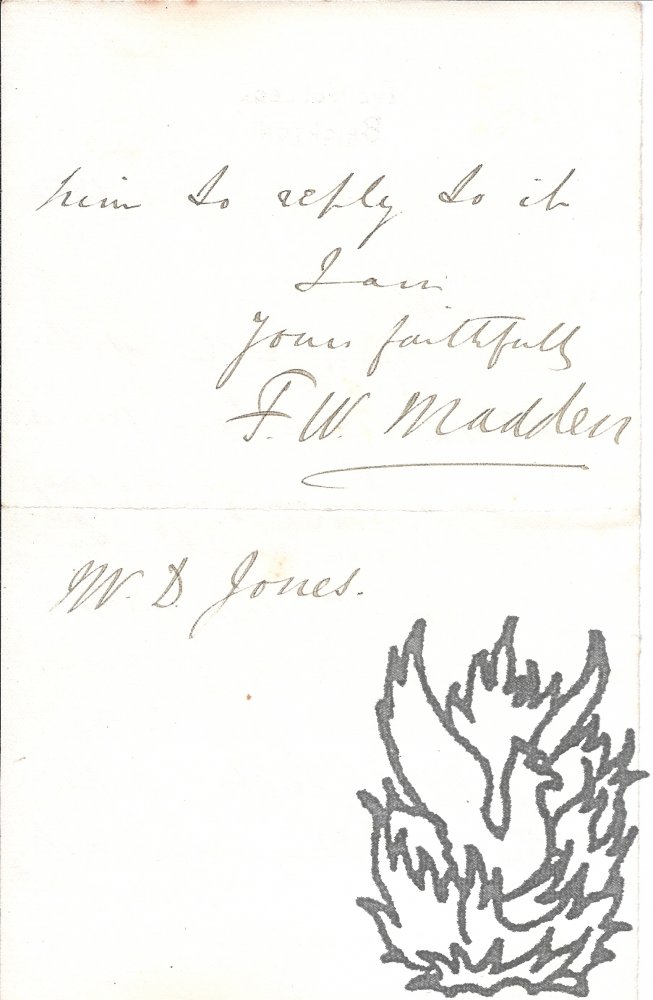 him to reply to it
I am
Yours faithfully
F. W. Madden
W. D. Jones.